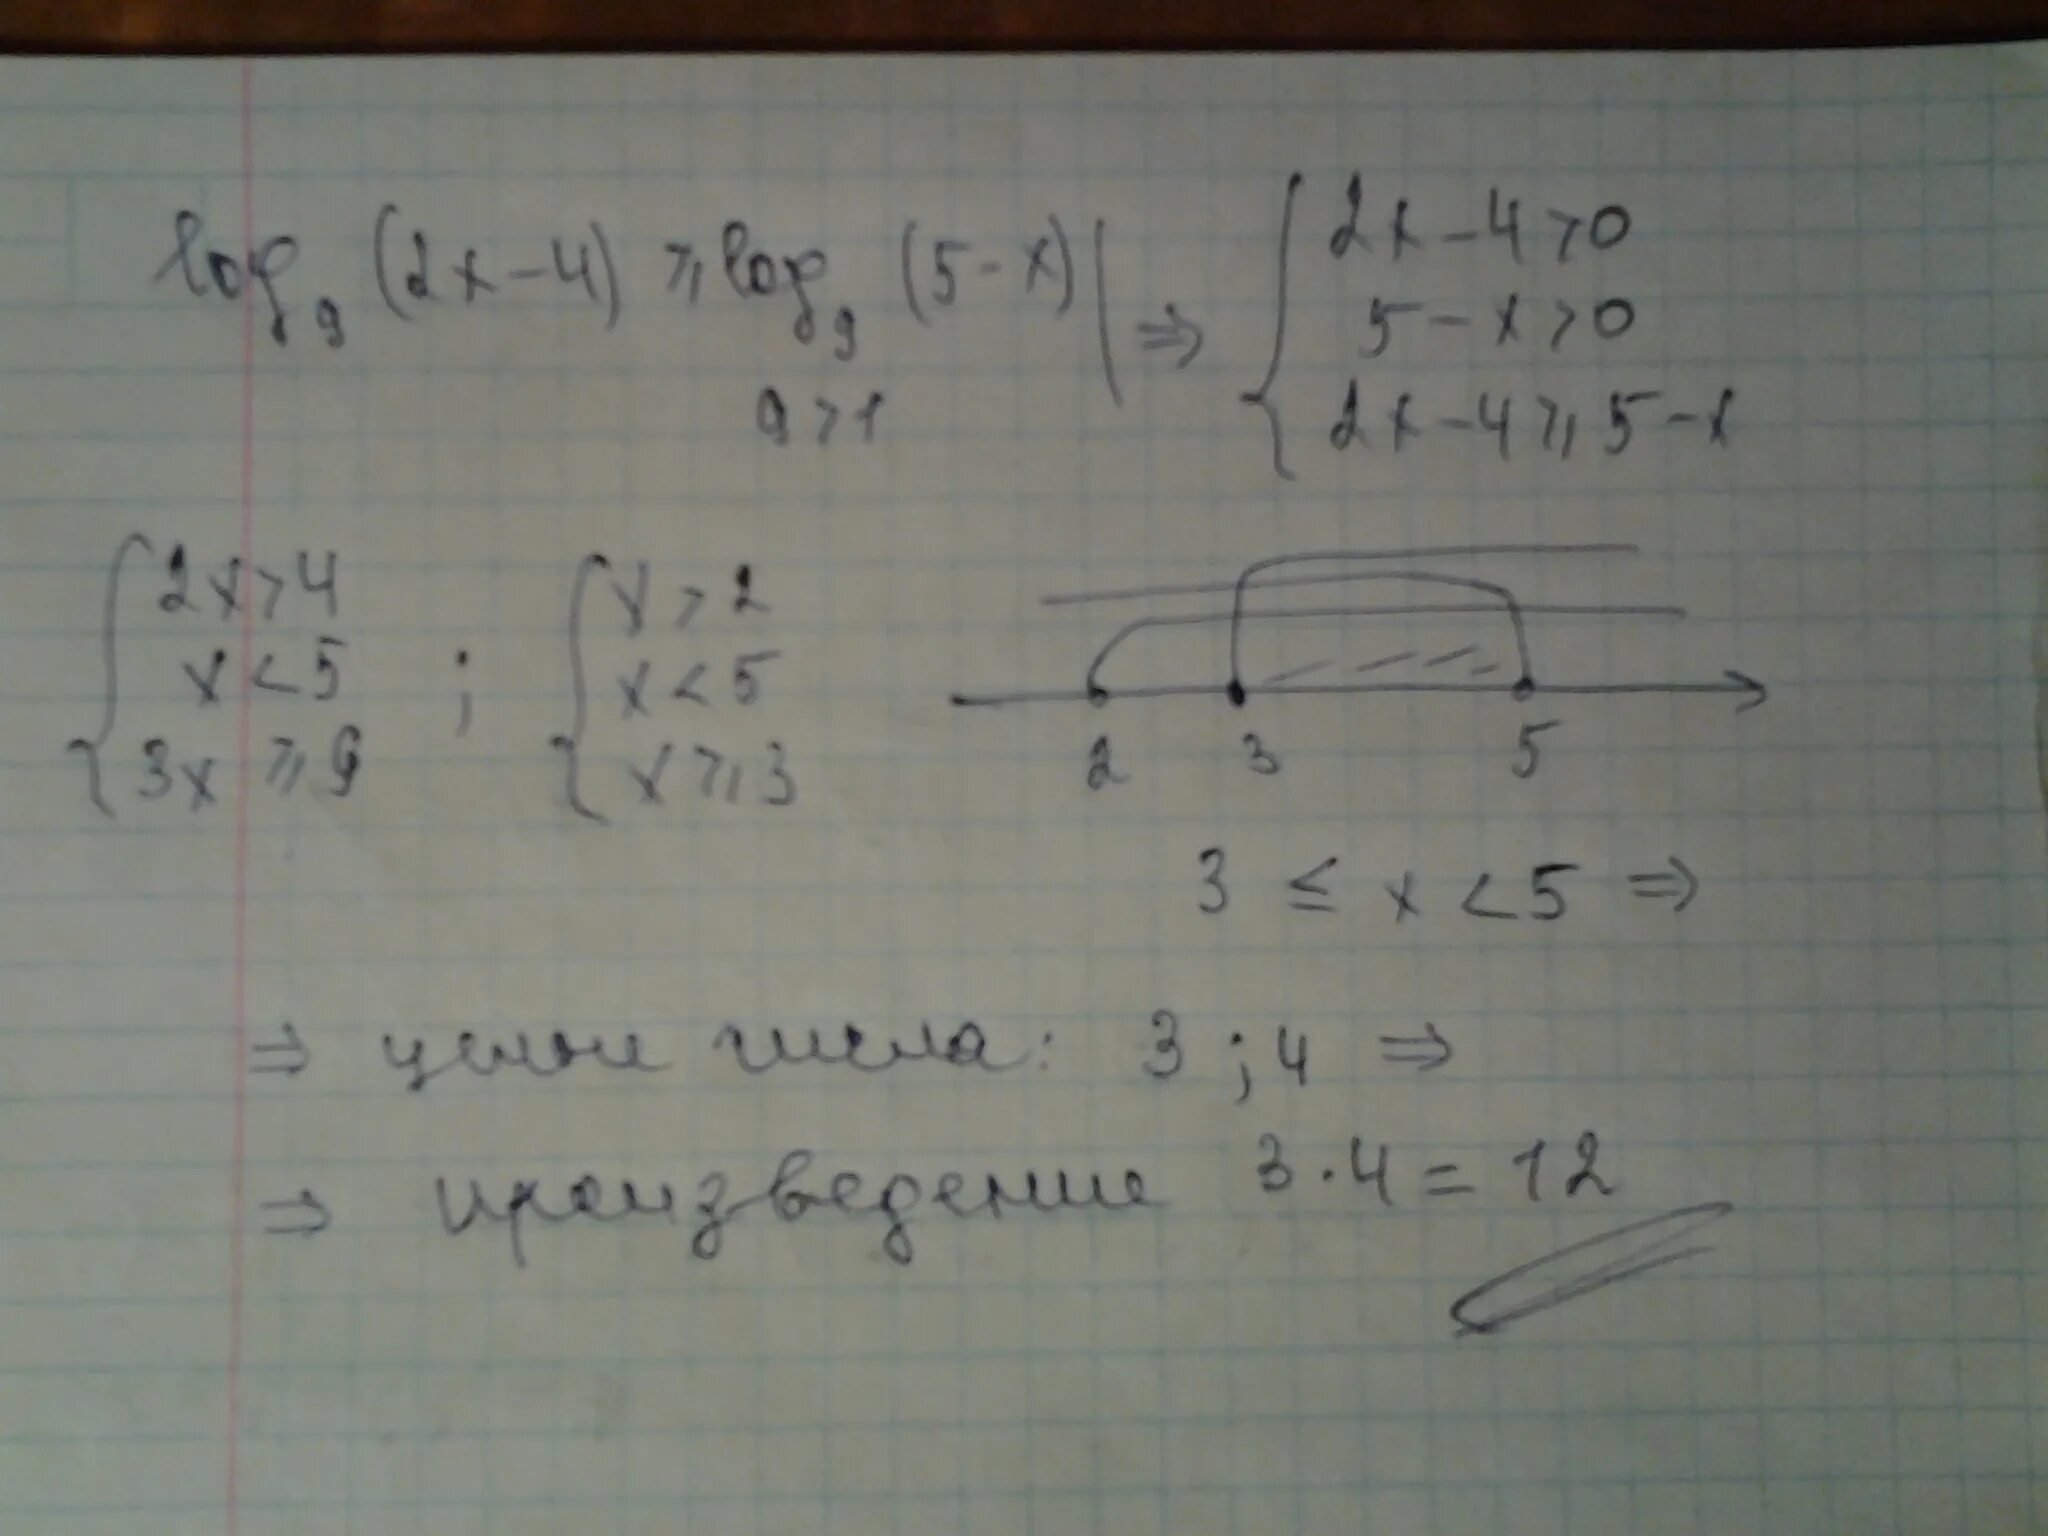 log₉ (2x-4) ⩾ log₉ (5-x) | ⇒ { 2x-4>0
5-x>0
9>1
2x-4⩾5-x
{ 2x>4
x<5
3x ⩾ 9
; { x>2
x<5
x⩾3
2 3 5
3 ≤ x < 5 ⇒
⇒ целые числа: 3 ; 4 ⇒
⇒ произведение 3·4=12